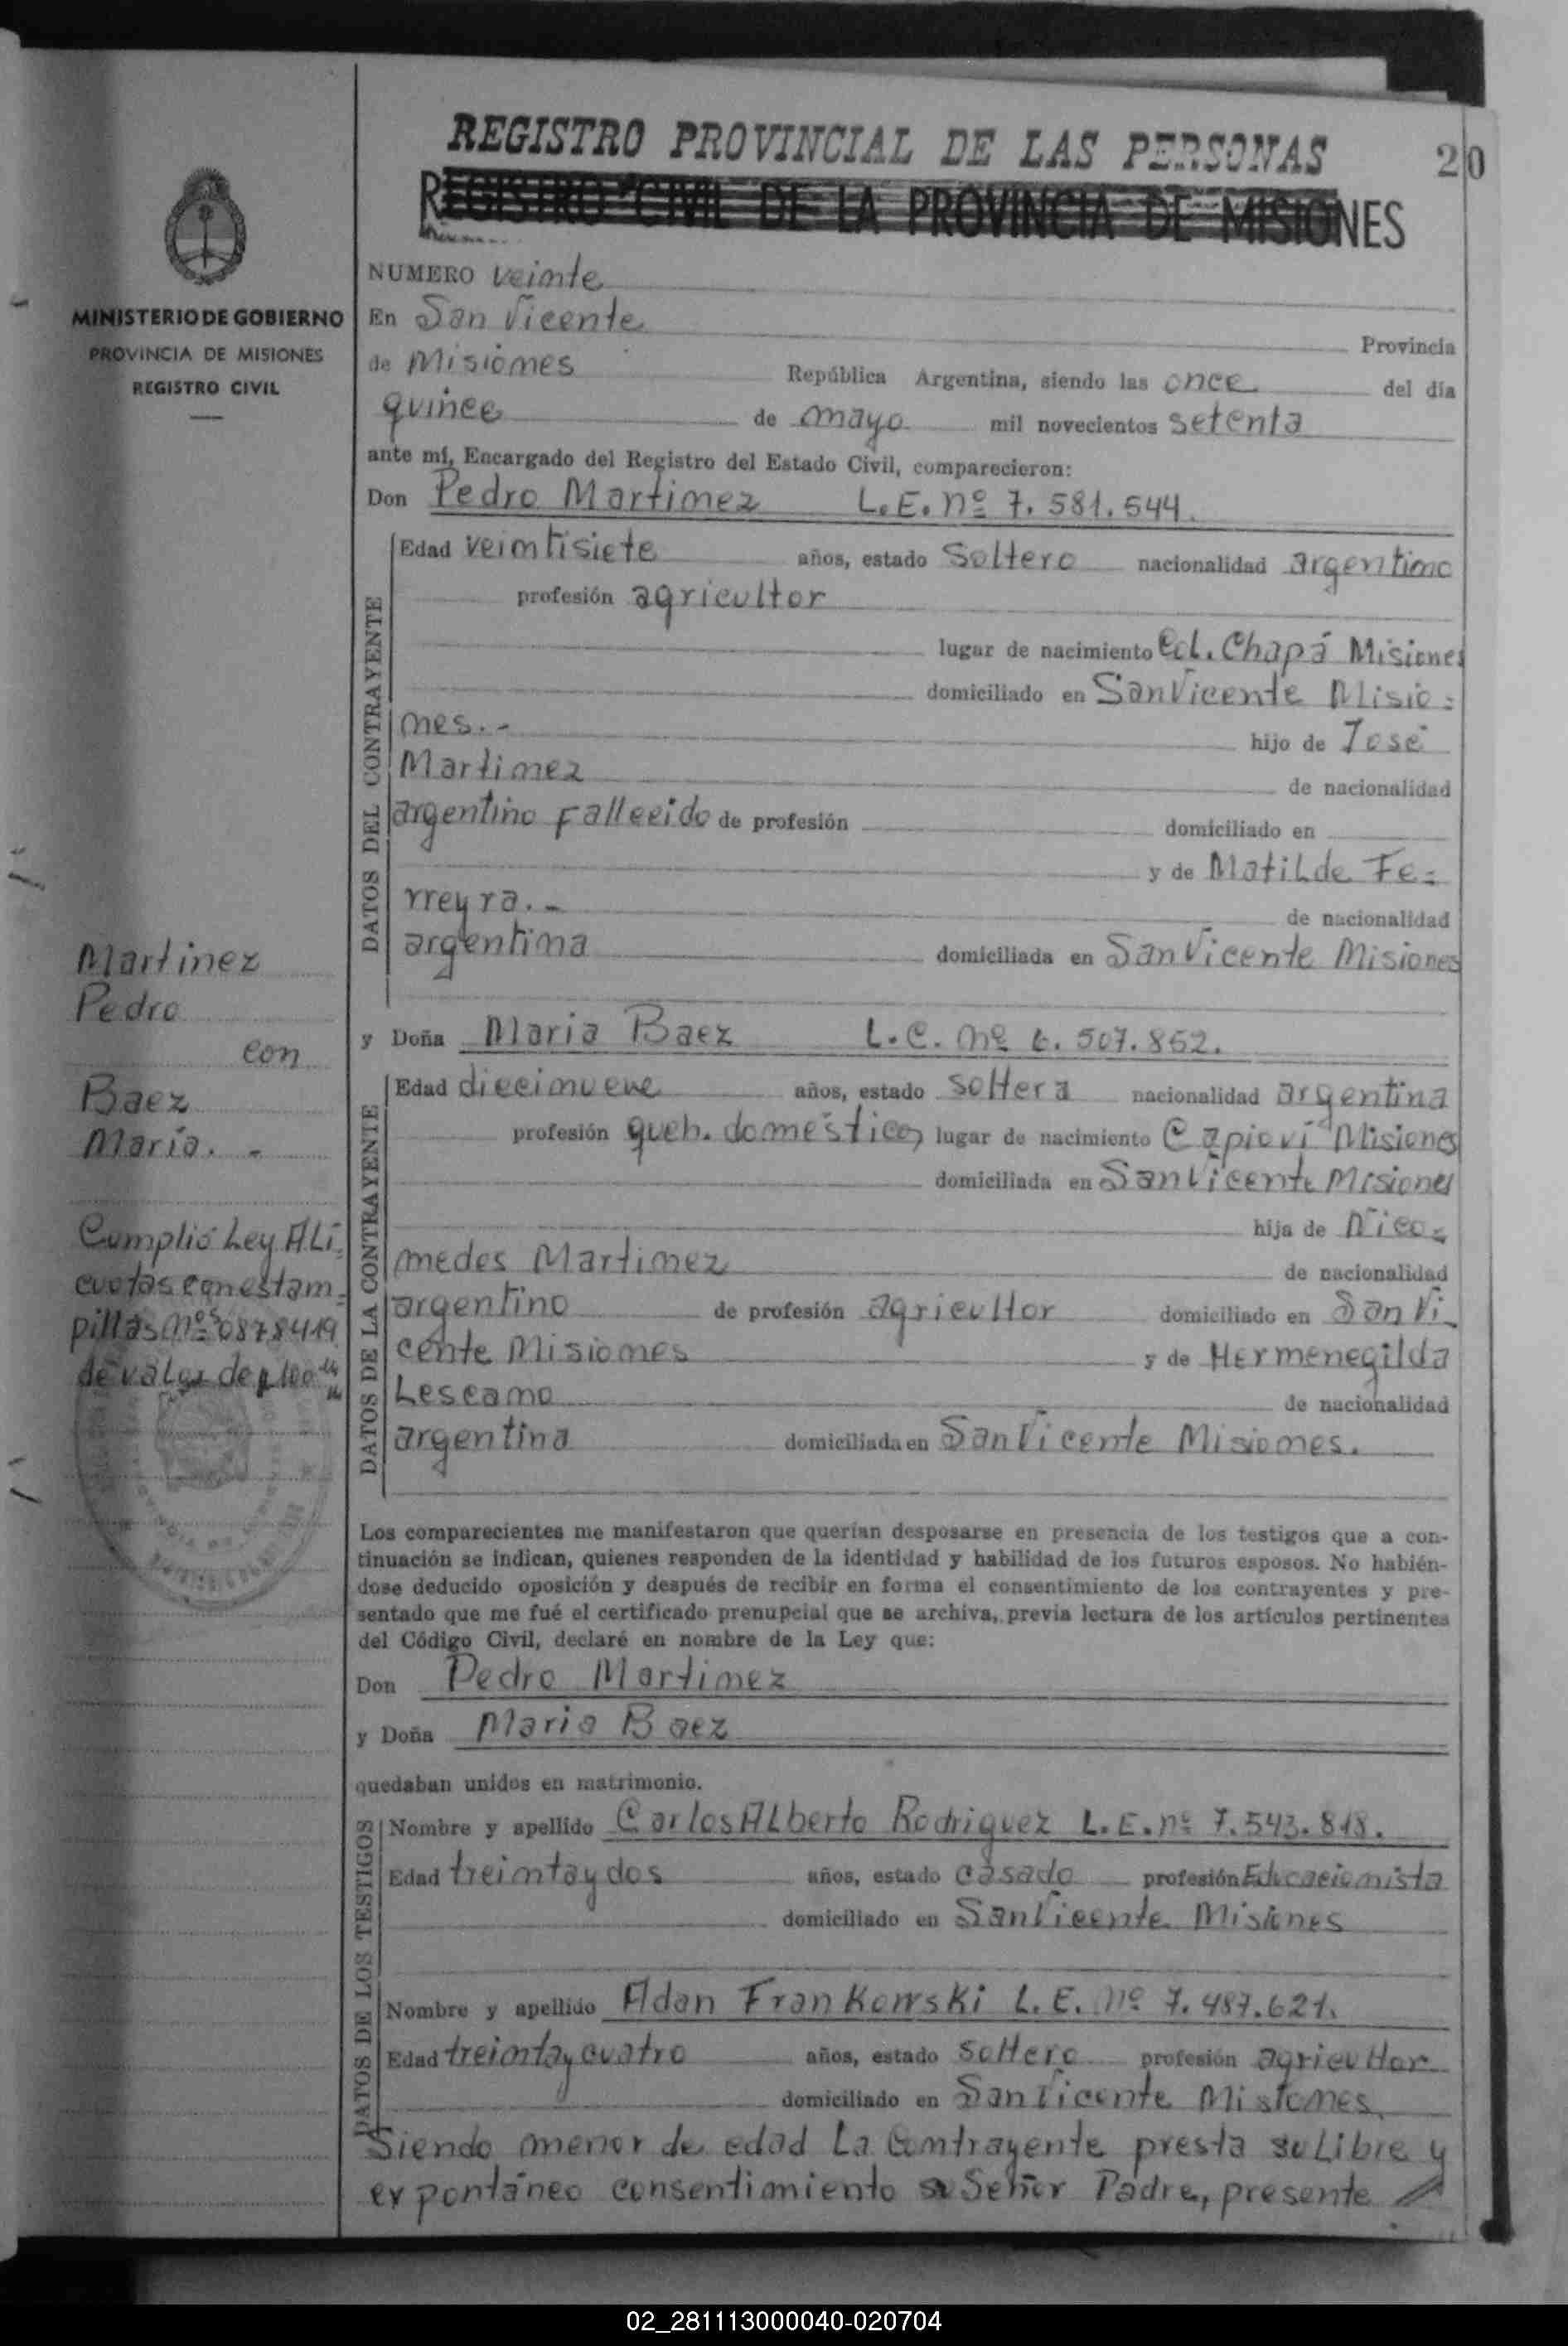 REGISTRO PROVINCIAL DE LAS PERSONAS
20
REGISTRO CIVIL DE LA PROVINCIA DE MISIONES
MINISTERIO DE GOBIERNO
PROVINCIA DE MISIONES
REGISTRO CIVIL
NUMERO veinte
En San Vicente Provincia
de Misiones República Argentina, siendo las once del día
quince de mayo mil novecientos setenta
ante mí, Encargado del Registro del Estado Civil, comparecieron:
Don Pedro Martinez L.E. nº 7.581.544.
DATOS DEL CONTRAYENTE
Edad veintisiete años, estado soltero nacionalidad argentino
profesión agricultor
lugar de nacimiento Col. Chapá Misiones
domiciliado en San Vicente Misio=
nes.- hijo de José
Martinez de nacionalidad
argentino Fallecido de profesión domiciliado en
y de Matilde Fe=
rreyra.- de nacionalidad
argentina domiciliada en San Vicente Misiones
Martinez
Pedro
con
Baez
María.-
y Doña Maria Baez L.C. nº 6.507.852.
DATOS DE LA CONTRAYENTE
Edad diecinueve años, estado soltera nacionalidad argentina
profesión queh. domésticos lugar de nacimiento Capioví Misiones
domiciliada en San Vicente Misiones
hija de Nico=
medes Martinez de nacionalidad
argentino de profesión agricultor domiciliado en San Vi
cente Misiones y de Hermenegilda
Lescano de nacionalidad
argentina domiciliada en San Vicente Misiones.
Cumplió Ley ALí=
cuotas con estam=
pillas nºs 0878419
de valor de $ 100
Los comparecientes me manifestaron que querían desposarse en presencia de los testigos que a con-
tinuación se indican, quienes responden de la identidad y habilidad de los futuros esposos. No habién-
dose deducido oposición y después de recibir en forma el consentimiento de los contrayentes y pre-
sentado que me fué el certificado prenupcial que se archiva, previa lectura de los artículos pertinentes
del Código Civil, declaré en nombre de la Ley que:
Don Pedro Martinez
y Doña Maria Baez
quedaban unidos en matrimonio.
DATOS DE LOS TESTIGOS
Nombre y apellido Carlos ALberto Rodriguez L.E. nº 7.543.818.
Edad treinta y dos años, estado casado profesión Educacionista
domiciliado en San Vicente Misiones
Nombre y apellido Adan Frankowski L.E. nº 7.487.621.
Edad treinta y cuatro años, estado soltero profesión agricultor
domiciliado en San Vicente Misiones.
Siendo menor de edad La Contrayente presta su Libre y
expontáneo consentimiento su Señor Padre, presente
02_281113000040-020704